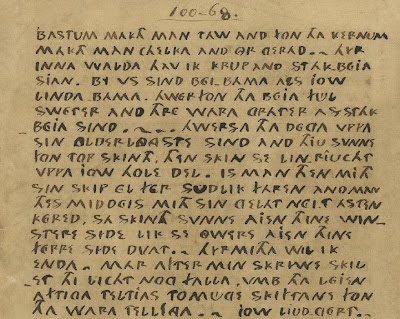 100-68.
BASTUM MAKATH MAN TAW AND FON THA KERNUM
MAKATH MAN CHELKA AND OR GERAD.. HYR
INNA WALDA HAV IK KRUP AND STAK BEIA
SIAN. BY US SIND BEL BAMA ALS IOW
LINDA BAMA. HWER FON THA BEIA FUL
SWETER AND THRE WARA GRATER AS STAK
BEIA SIND. HWERSA THA DEGA VPPA
SIN OLDERLOGSTE SIND AND THIU SVNNE
FON TOP SKINTH. THEN SKIN SE LIN RIUCHT
VPPA IOW HOLE DEL. IS MAN THEN MITH
SIN SKIP EL FER SUDLIK FAREN. AND MAN
THES MIDDEIS MITH SIN GELAT NEIT ASTEN
KERED, SA SKINTH SVNNE AIEN THINE WIN
STERE SIDE LIK SE OWERS AIEN THINE
FERRE SIDE DVAT.. HYRMITHA WIL IK
ENDA. MAR AFTER MIN SKRIWE SKIL
ET THI LICHT NOG FALLA, VMB THA LEIEN
AFTIGA TELTIAS TO MUGE SKIFTANE FON
THA WARA TELLIGA.. IOW LIUDGERT.